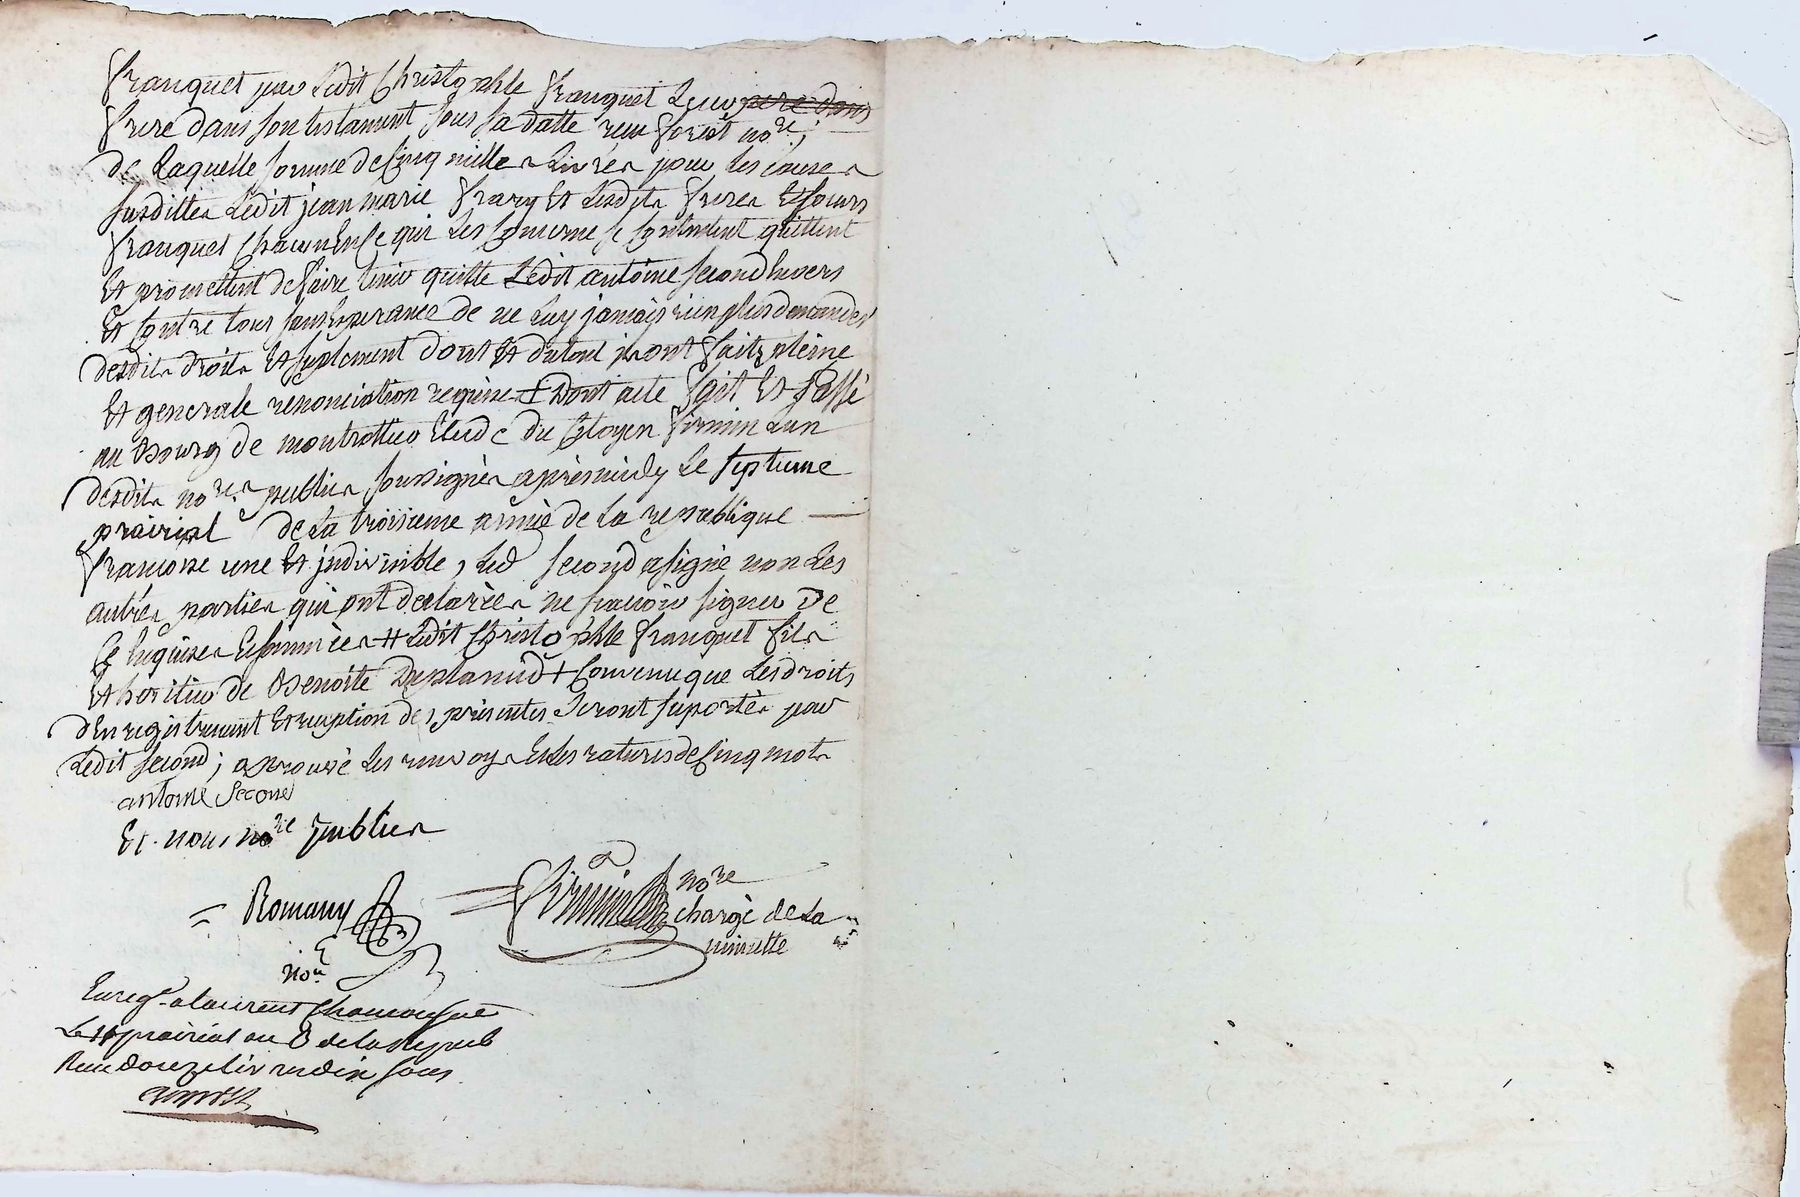 franquet par Ledit Christophle franquet Leur pere dans
frere dans son testament sous sa datte reçu forest no.re;
de Laquelle somme de Cinq milles Livres pour les causes
susdittes Ledit jean marie frary Et Lesdits freres Et soeurs
franquet Chacun En Ce qui Les Concerne se Contentent quittent
Et promettent de faire tenir quitte Ledit antoine second Envers
Et Contre tous sans Esperance de ne Luy jamais rien plus demander
desdits droits Et suplement dont Et du tout ils ont fait pleine
Et generale renonciation requise + Dont acte fait Et passé
au Bourg de montrottier Etude du Citoyen firmin L'un
desdits no.res publics soussignés aprés midy Le septieme
prairial de La troisieme année de La republique
francoise une Et indivisible, Led second a signé non Les
autres parties qui ont declarées ne scavoir signer De
Ce Enquises Et sommées # Ledit Christophle franquet fils
Et heritier de Benoite Duplanud + Convenu que Les droits
d'Enregistrement Et Expedition des présentes seront suportés par
Ledit second; aprouvé Les renvoys Et Les ratures de Cinq mots
antoine Second
Et nous no.re publics
Romany no.re
firmin no.re
chargé de La
minutte
Enreg.é a Laurent Chamousset
Le prairial an 3 de La Repub
Reçu douze Livres dix sous